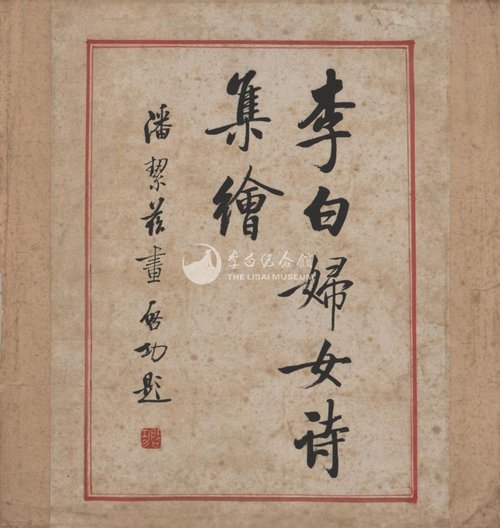 李白婦女诗
集繪
潘絜茲畫 啓功题
李白纪念馆
THE LIBAI MUSEUM